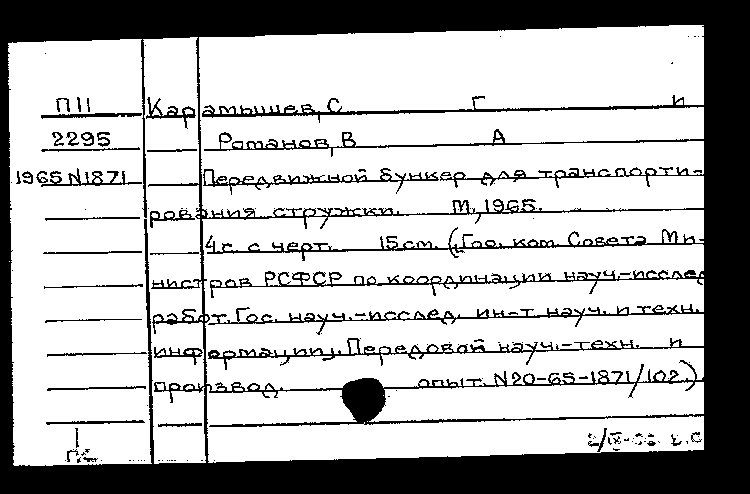 П11 Карамышев, С Г и
2295 Романов, В А
1965 N1871 Передвижной бункер для транспорти-
рования стружки. М., 1965.
4 с. с черт. 15 см. (Гос. ком. Совета Ми-
нистров РСФСР по координации науч.-исслед
работ. Гос. науч.-исслед. ин-т науч. и техн.
информации. Передовой науч.-техн. и
производ. опыт. N20-65-1871/102.)